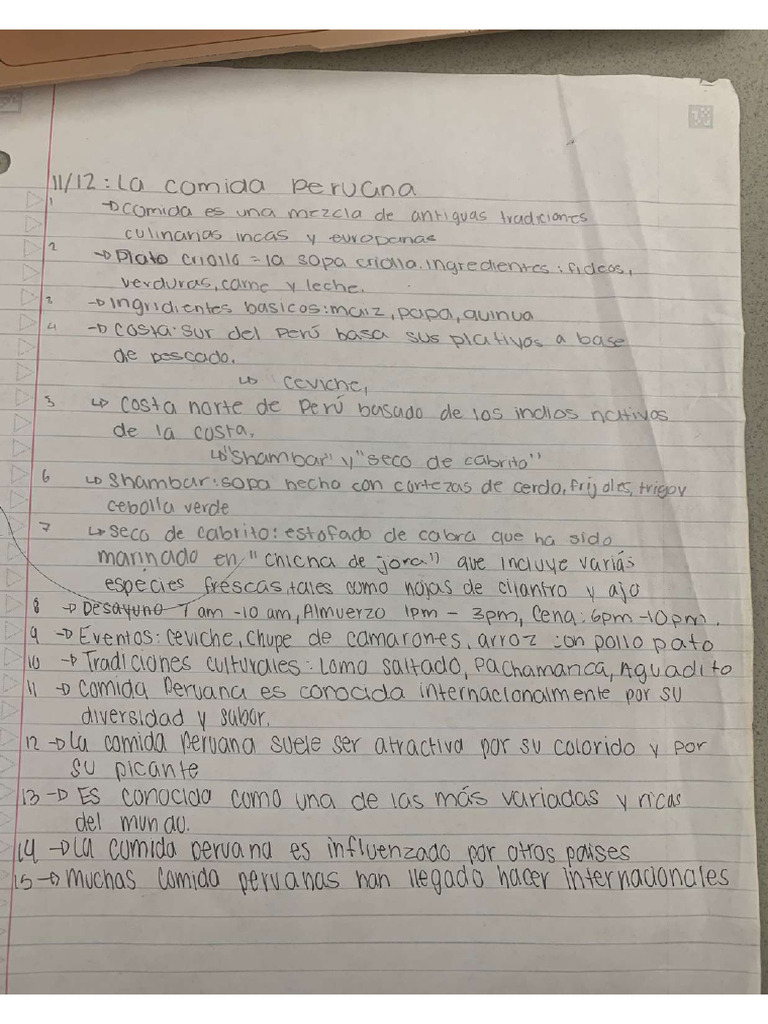 11/12: La comida peruana
1 → comida es una mezcla de antiguas tradiciones
culinarias incas y europeas
2 → Plato criollo = la sopa criolla. Ingredientes: fideos,
verduras, carne y leche.
3 → Ingridientes basicos: maiz, papa, quinua
4 → costa sur del Perú basa sus plativos a base
de pescado.
↳ ceviche,
5 ↳ costa norte de Perú basado de los indios nativos
de la costa.
↳ "Shambar" y "seco de cabrito"
6 ↳ Shambar: sopa hecho con cortezas de cerdo, frijoles, trigo y
cebolla verde
7 ↳ seco de cabrito: estofado de cabra que ha sido
marinado en "chicha de jora" que incluye varias
espécies frescas, tales como hojas de cilantro y ajo
8 → Desayuno 7am - 10 am, Almuerzo 1pm - 3pm, Cena: 6pm - 10pm.
9 → Eventos: ceviche, chupe de camarones, arroz con pollo pato
10 → Tradiciones culturales: Lomo saltado, Pachamanca, Aguadito
11 → comida Peruana es conocida internacionalmente por su
diversidad y sabor.
12 → La comida peruana suele ser atractiva por su colorido y por
su picante
13 → Es conocida como una de las más variadas y ricas
del mundo.
14 → La comida peruana es influenzado por otros paises
15 → muchas comida peruanas han llegado hacer internacionales